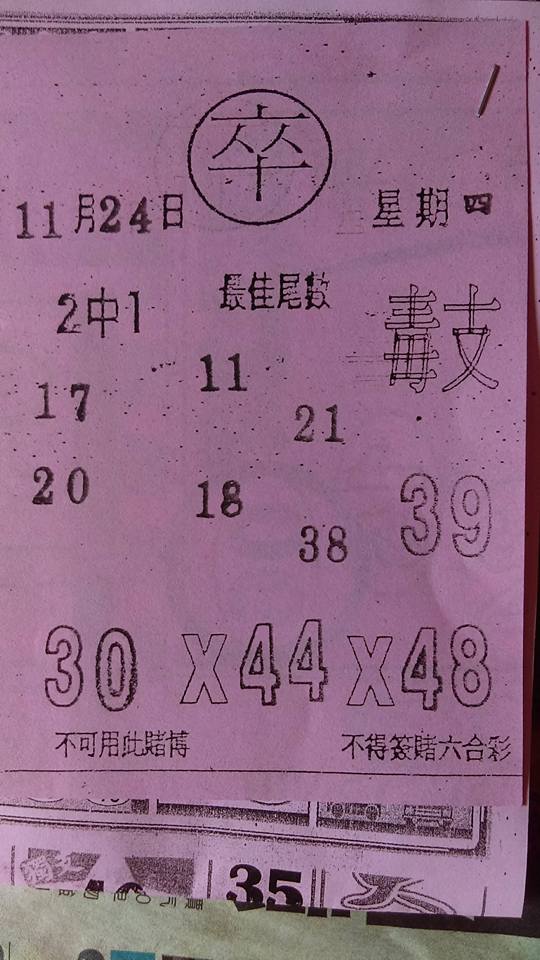 卒
11月24日 星期四
2中1 最佳尾數 毒支
17 11
21
20 18 39
38
30 X 44 X 48
不可用此賭博 不得簽賭六合彩
35